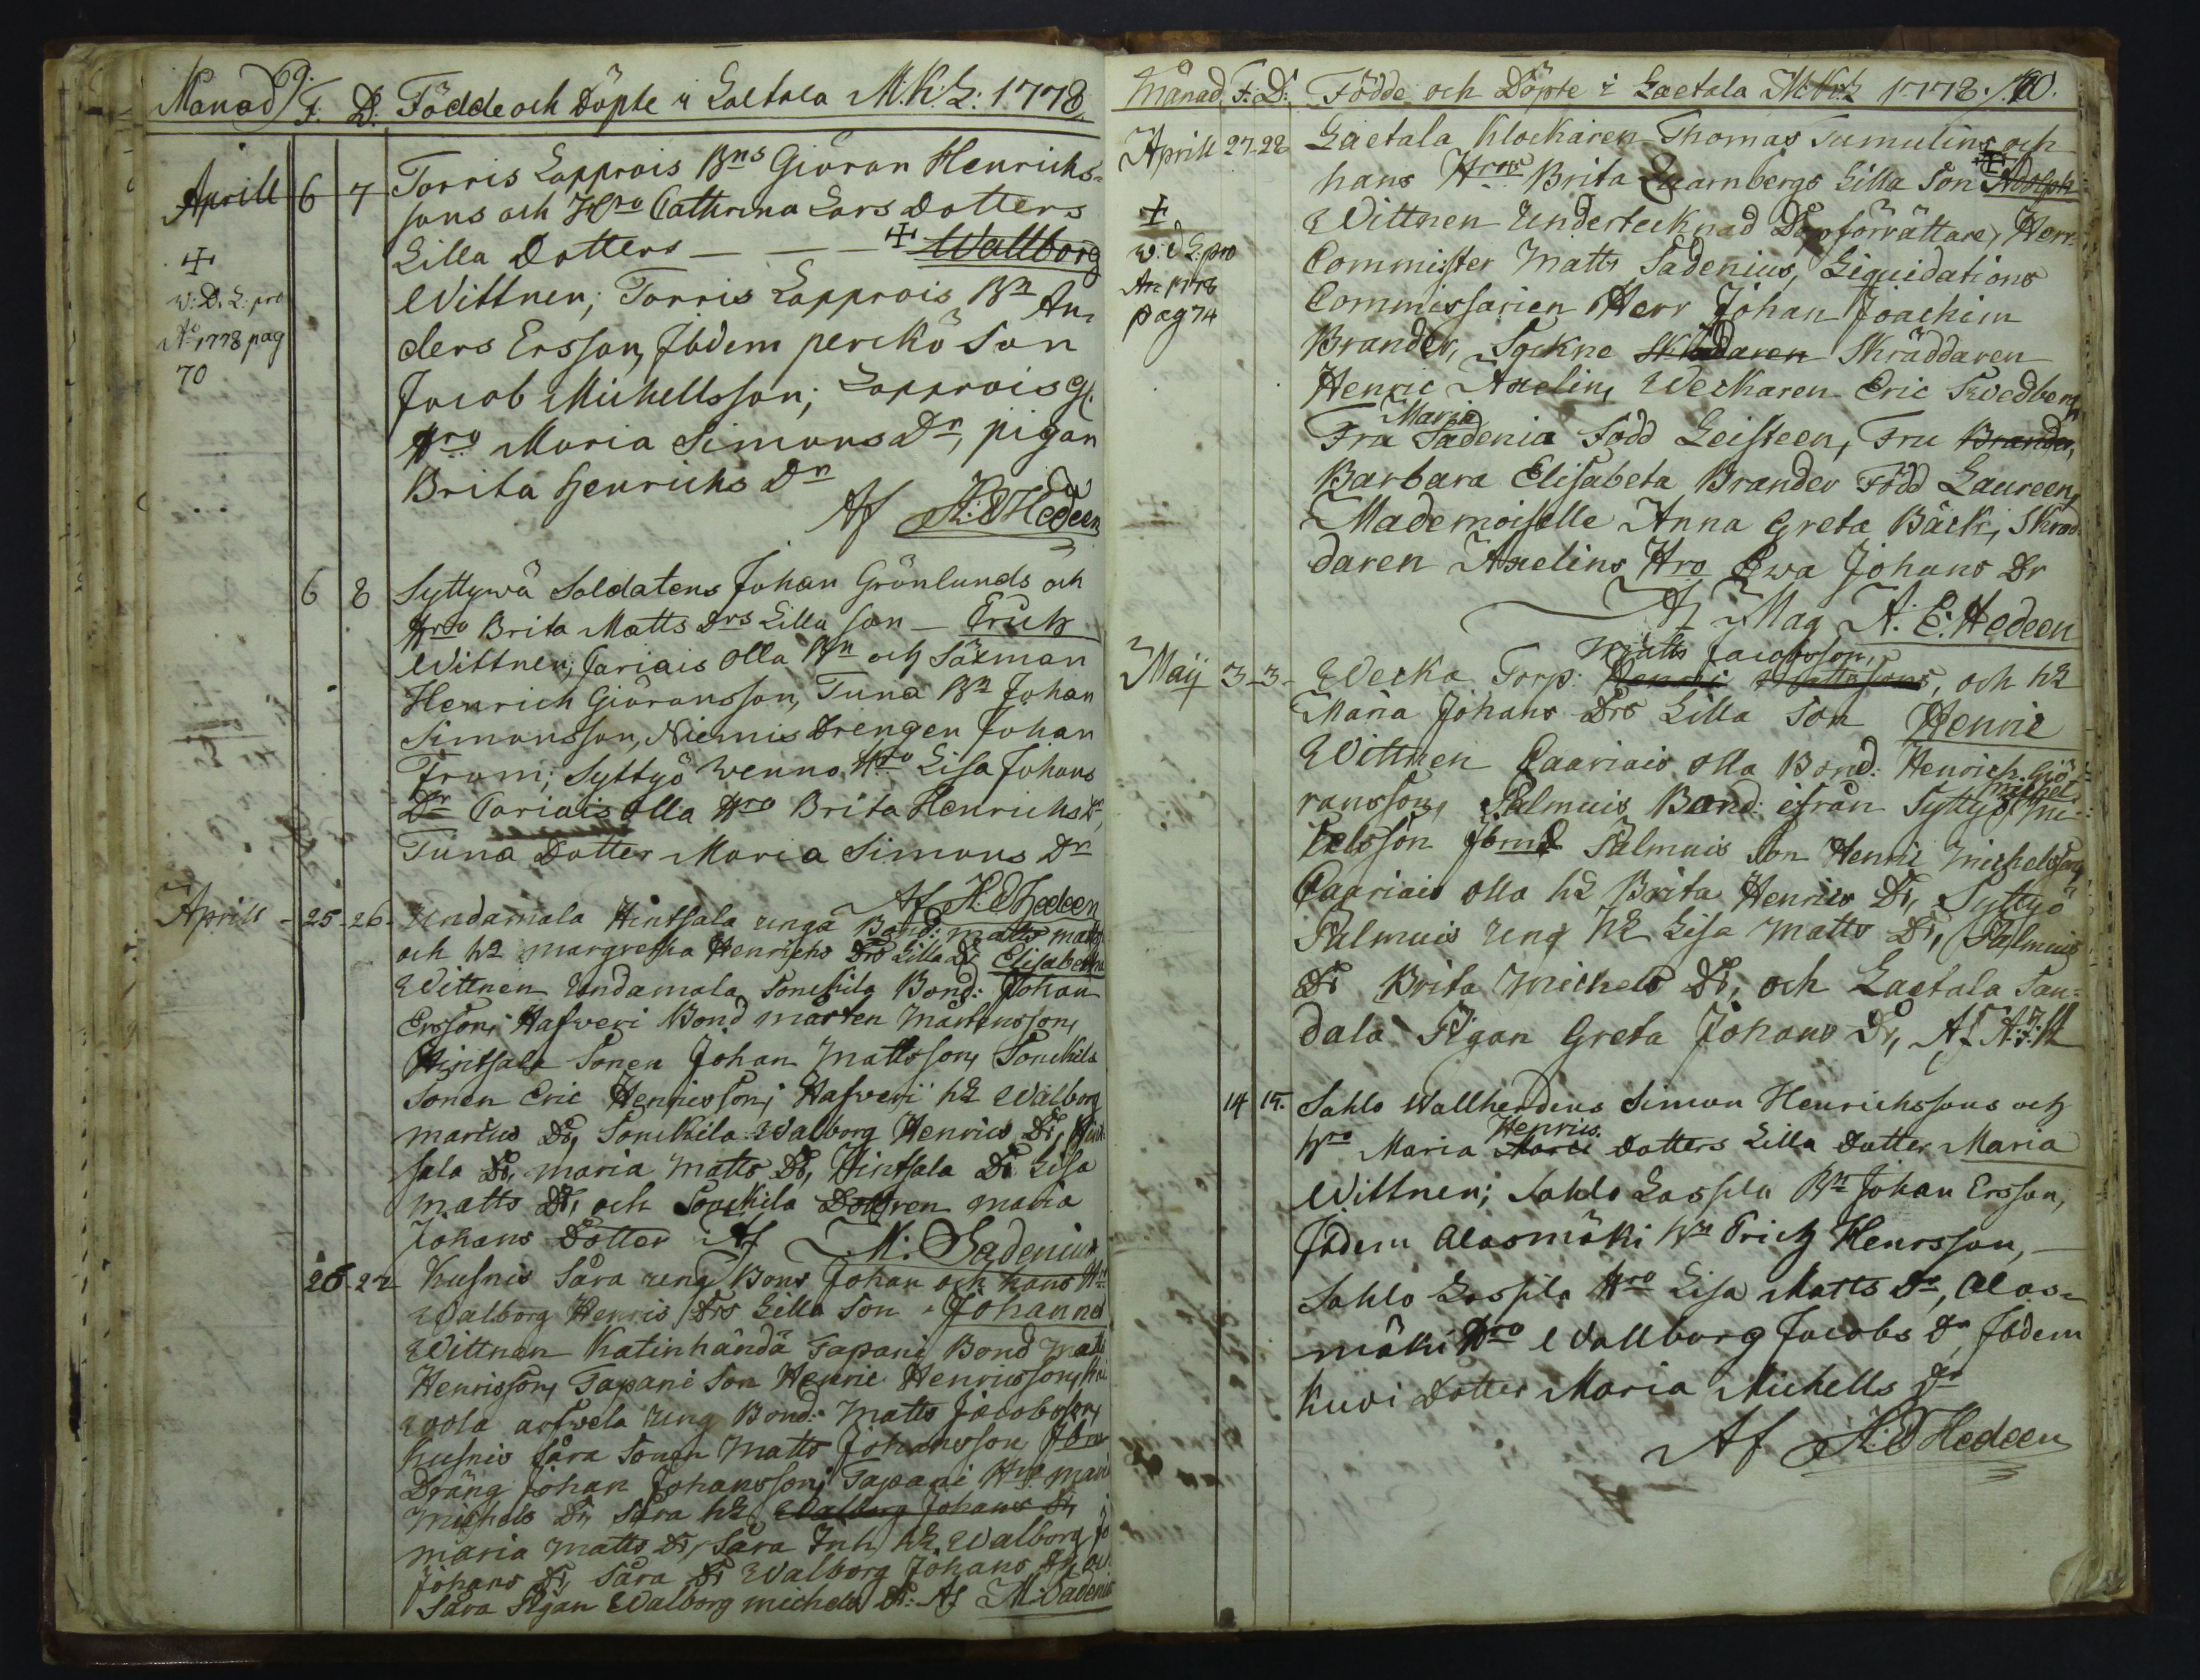 69.
Månad F. D. Födde och Döpte i Laetala M:K:L: 1778.
Aprill 6 7 Torris Lapprois Bns Giöran Henrichs=
sons och Hro Cathrina Lars Dotters
Lilla Dotters — — — ✝ Wallborg
✝
W: D: L: pro
Ao 1778 pag
70
Wittnen; Torris Lapprois Bn An=
ders Ersson, Ibdem perckö Son
Jacob Michellsson; Lapprois gl.
Hro Maria Simons Dr, pigan
Brita Henrichs Dr
Af H: E Hedeen
6 8 Syttywä Soldatens Johan Grönlunds och
Hro Brita Matts Drs Lilla son — Erich
Wittnen, Cariais Olla Bn och Säxman
Henrich Giöransson, Tuna Bn Johan
Simonsson, Niemis Drengen Johan
From; Syttyö wenno Hro Lisa Johans
Dr Cariais Olla Hro Brita Henrichs Dr,
Tuna Dotter Maria Simons Dr
Af H E Hedeen
Aprill - 25-26- Undamala Hintsala unga Bond: matts matts
och h2 margretha Henrichs Drs Lilla Dr Elisabetha
Wittnen Undamala Sonckila Bond: Johan
Ersson, Hafveri Bond mårten Mårtensson,
Hintsala Sonen Johan Mattsson, Sonckila
Sonen Eric Henricsson, Hafveri h2 Walborg
martins Dr, Sonckila Walborg Henrics Dr, Hint
sala Dr, maria Matts Dr, Hintsala Dr Lisa
Matts Dr, och Sonckila Dottren maria
Johans Dotter Af M: Sadenius
26-27 Kusnis Sara ung Bons Johan och hans H:
Walborg Henris Drs Lilla Son - Johannes
Wittnen Katinhändä Tapani Bond Matts
Henrisson, Tapani Son Henric Henricsson,
woola arfwela ung Bond: Matts Jacobsson,
Kusnis Sara Sonen Matts Johansson Ibm
Dräng Johan Johansson, Tapani Hro mari
Michels Dr, Sara h2 Walborg Johans Dr,
maria Matts Dr, Sara Inh h2 Walborg Jo
Johans Dr, Sara Dr Walborg Johans Dr, och
Sara Pigan Walborg michels Dr: Af M: Sadenius
Månad F: D: Födde och Döpte i Laetala M:K:L 1778. 70.
Aprill 27-28 Laetala Klockaren Thomas Tumulins och
hans Hros Brita Quarnbergs Lilla Son ✝ Adolph
✝
W: d L: pro
An 1778
pag 74
Wittnen Undertecknad Dopförrättare, Herr
Commister Matts Sadenius, Liquidations
Commissarien Herr Johan Joachim
Brander, Sockne Skräddaren
Henric Axelin, Weckaren Eric Swedberg,
Maria
Fru Sadenia Född Leisteen, Fru Brander,
Barbara Elisabeta Brander Född Laureen,
Mademoiselle Anna Greta Bäck, Skräd
daren Axelins Hro Ewa Johans Dr
Af Mag A. E: Hedeen
Matts Jacobsson,
Maij 3-3- Wecka Torp: Henric Mattssons, och h2
Maria Johans Drs Lilla Son Henric
Wittnen Caariais olla Bond: Henrich Giö=
ransson, Palmuis Bond: ifrån Syttyö michel mi=
kelsson Ibmd Palmuis Son Henric michelsson,
Caariais olla h2 Brita Henrics Dr, Syttyö
Palmuis ung h2 Lisa Matts Dr, Palmuis
Dr Brita Michels Dr, och Laetala San=
dala Pigan Greta Johans Dr, Af A: J: H
14 15. Sahlo Wallherdens Simon Henrichssons och
Henrics
Hro Maria Dotters Lilla Dotter Maria
Wittnen; Sahlo Lassila Bn Johan Ersson,
Ibdem Alasmäki Bn Erich Henrsson, —
Sahlo Lassila Hro Lisa Matts Dr, Alas=
mäki Hro Wallborg Jacobs Dr Ibdem
Kuvi Dotter Maria Michells Dr
Af H: E Hedeen